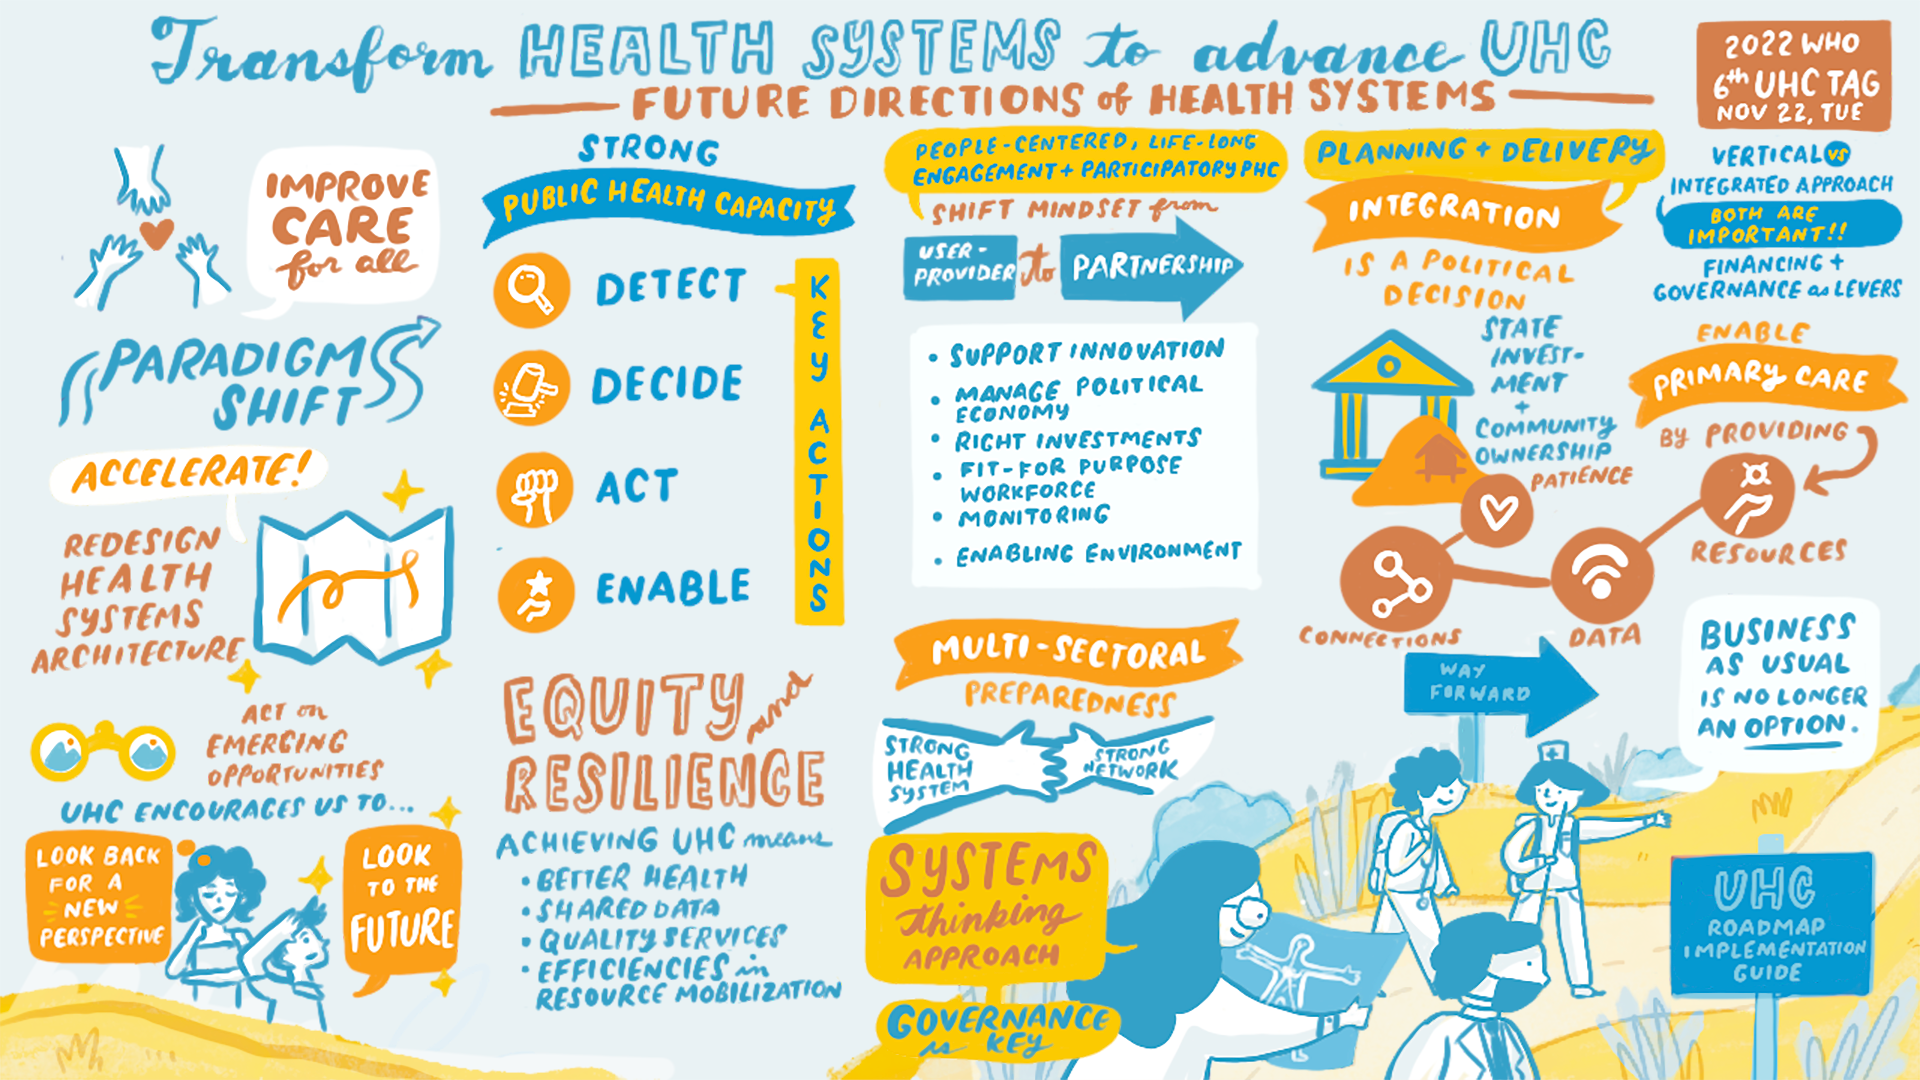 Transform HEALTH SYSTEMS to advance UHC
FUTURE DIRECTIONS of HEALTH SYSTEMS
2022 WHO
6th UHC TAG
NOV 22, TUE
IMPROVE
CARE
for all
PARADIGM
SHIFT
ACCELERATE!
REDESIGN
HEALTH
SYSTEMS
ARCHITECTURE
ACT on
EMERGING
OPPORTUNITIES
UHC ENCOURAGES US TO...
LOOK BACK
FOR A
NEW
PERSPECTIVE
LOOK
TO THE
FUTURE
STRONG
PUBLIC HEALTH CAPACITY
DETECT
DECIDE
ACT
ENABLE
KEY ACTIONS
EQUITY and
RESILIENCE
ACHIEVING UHC means
• BETTER HEALTH
• SHARED DATA
• QUALITY SERVICES
• EFFICIENCIES in
RESOURCE MOBILIZATION
PEOPLE-CENTERED, LIFE-LONG
ENGAGEMENT + PARTICIPATORY PHC
SHIFT MINDSET from
USER-
PROVIDER to PARTNERSHIP
• SUPPORT INNOVATION
• MANAGE POLITICAL
ECONOMY
• RIGHT INVESTMENTS
• FIT-FOR PURPOSE
WORKFORCE
• MONITORING
• ENABLING ENVIRONMENT
MULTI-SECTORAL
PREPAREDNESS
STRONG
HEALTH
SYSTEM
STRONG
NETWORK
SYSTEMS
thinking
APPROACH
GOVERNANCE
is KEY
PLANNING + DELIVERY
INTEGRATION
IS A POLITICAL
DECISION
STATE
INVEST-
MENT
+
COMMUNITY
OWNERSHIP
PATIENCE
CONNECTIONS
DATA
RESOURCES
VERTICAL VS
INTEGRATED APPROACH
BOTH ARE
IMPORTANT!!
FINANCING +
GOVERNANCE as LEVERS
ENABLE
PRIMARY CARE
BY PROVIDING
WAY
FORWARD
BUSINESS
AS USUAL
IS NO LONGER
AN OPTION.
UHC
ROADMAP
IMPLEMENTATION
GUIDE